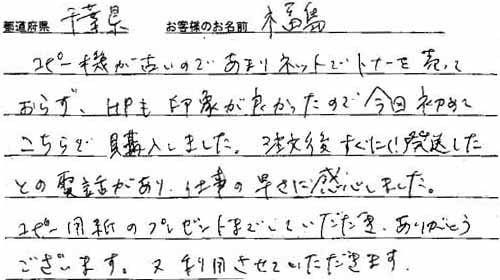 都道府県 千葉県 お客様のお名前 福島
コピー機が古いのであまりネットでトナーを売って
おらず、HPも印象が良かったので今回初めて
こちらで購入しました。注文後すぐに発送した
との電話があり、仕事の早さに感心しました。
コピー用紙のプレゼントまでしていただき、ありがとう
ございます。又利用させていただきます。